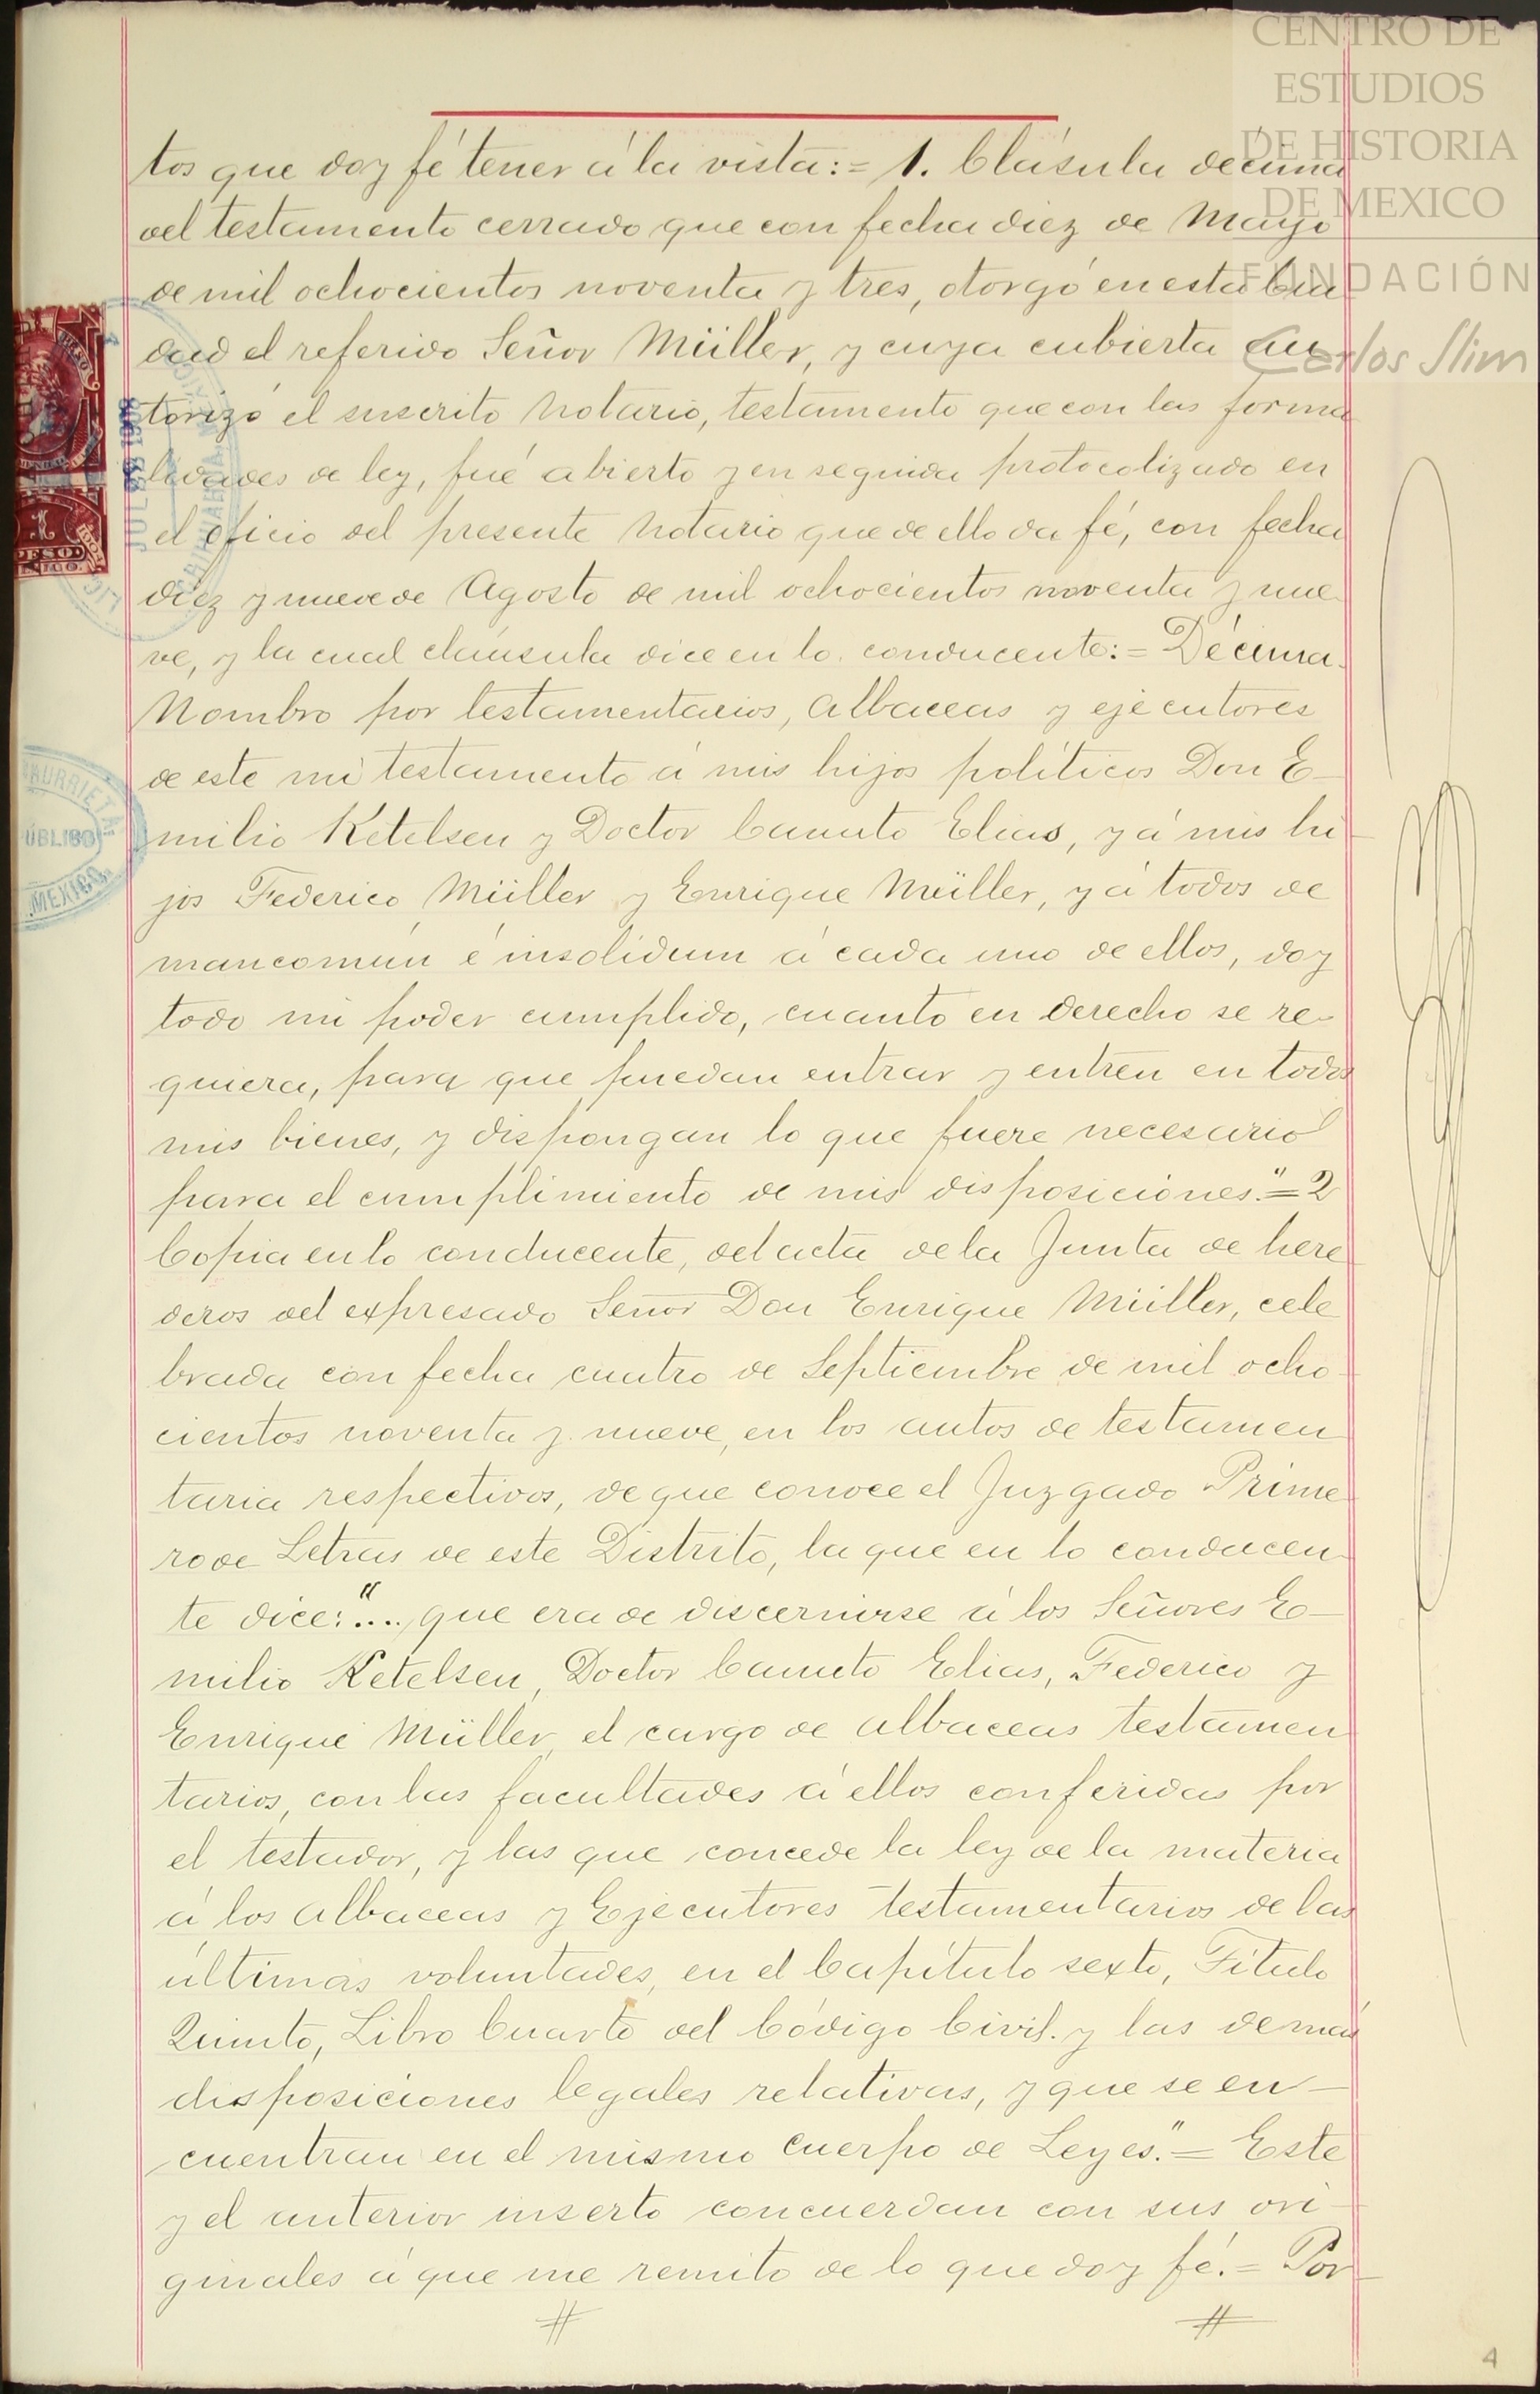 CENTRO DE
ESTUDIOS
DE HISTORIA
DE MEXICO
FUNDACIÓN
Carlos Slim
tos que doy fé tener á la vista:= 1. Cláusula décima
del testamento cerrado que con fecha diez de Mayo
de mil ochocientos noventa y tres, otorgó en esta Ciu
dad el referido Señor Müller, y cuya cubierta au
torizó el suscrito Notario, testamento que con las forma
lidades de ley, fué abierto y en seguida protocolizado en
el oficio del presente Notario que de ello da fé, con fecha
diez y nueve de Agosto de mil ochocientos noventa y nue
ve, y la cual cláusula dice en lo conducente:= Décima.
Nombro por testamentarios, albaceas y ejecutores
de este mi testamento á mis hijos políticos Don E-
milio Ketelsen y Doctor Canuto Elias, y á mis hi-
jos Federico Müller y Enrique Müller, y á todos de
mancomún é insolidum á cada uno de ellos, doy
todo mi poder cumplido, cuanto en derecho se re-
quiera, para que puedan entrar y entren en todos
mis bienes, y dispongan lo que fuere necesario
para el cumplimiento de mis disposiciones."= 2
Copia en lo conducente, del acta de la Junta de here
deros del expresado Señor Don Enrique Müller, cele
brada con fecha cuatro de Septiembre de mil ocho-
cientos noventa y nueve, en los autos de testamen
taria respectivos, de que conoce el Juzgado Prime
ro de Letras de este Distrito, la que en lo conducen-
te dice: ".... que era de discernirse á los Señores E-
milio Ketelsen, Doctor Canuto Elias, Federico y
Enrique Müller, el cargo de albaceas testamen
tarios, con las facultades á ellos conferidas por
el testador, y las que concede la ley de la materia
á los albaceas y Ejecutores testamentarios de las
últimas voluntades, en el Capítulo sexto, Título
Quinto, Libro Cuarto del Código Civil. y las demás
disposiciones legales relativas, y que se en-
cuentran en el mismo Cuerpo de Leyes."= Este
y el anterior inserto concuerdan con sus ori-
ginales á que me remito de lo que doy fé.= Por
1
PESO
URRIETA
PÚBLICO
MEXICO
4